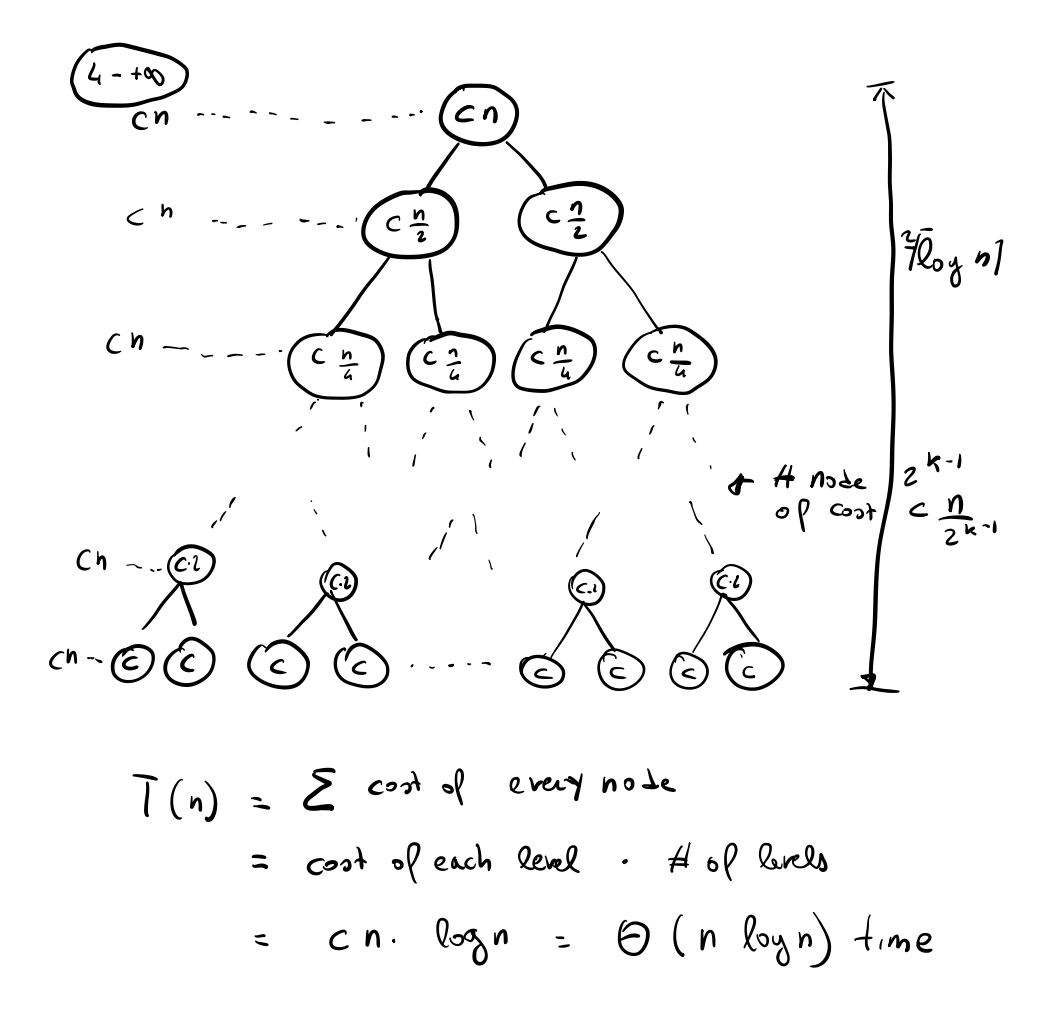 4 - +∞
cn cn
cn c n/2 c n/2
⌈log n⌉
cn c n/4 c n/4 c n/4 c n/4
# node 2^k-1
of cost c n/2^k-1
cn c·2 c·2 c·2 c·2
cn c c c c c c c c
T(n) = Σ cost of every node
= cost of each level · # of levels
= cn · log n = Θ (n log n) time